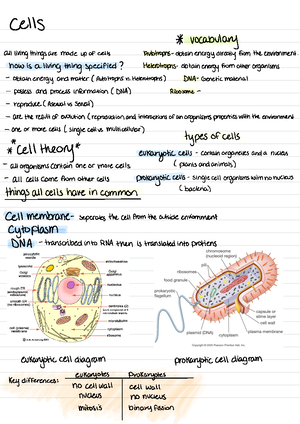 Cells
* vocabulary
all living things are made up of cells
Autotrophs- obtain energy directly from the environment
how is a living thing specified?
Heterotrophs- obtain energy from other organisms
- obtain energy and matter (Autotrophs vs Heterotrophs)
DNA- Genetic material
- posess and process information (DNA)
Ribosome -
- reproduce (Asexual vs Sexual)
- are the result of evolution (reproduction and interactions of an organisms properties with the environment
- one or more cells (single cell vs multicellular)
types of cells
*Cell theory*
eukaryotic cells - contain organelles and a nucleus
(plants and animals)
- all organisms contain one or more cells
- all cells come from other cells
prokaryotic cells - single cell organisms with no nucleus
(bacteria)
things all cells have in common
Cell membrane- seperates the cell from the outside environment
Cytoplasm
DNA - transcribed into RNA then is translated into protiens
chromosome
(nucleoid region)
pili
ribosomes
food granule
prokaryotic
flagellum
capsule or
slime layer
cell wall
plasma membrane
plasmid (DNA)
cytoplasm
eukaryotic cell diagram
prokaryotic cell diagram
Key differences:
eukaryotes
Prokaryotes
no cell wall
cell wall
nucleus
no nucleus
mitosis
binary fission